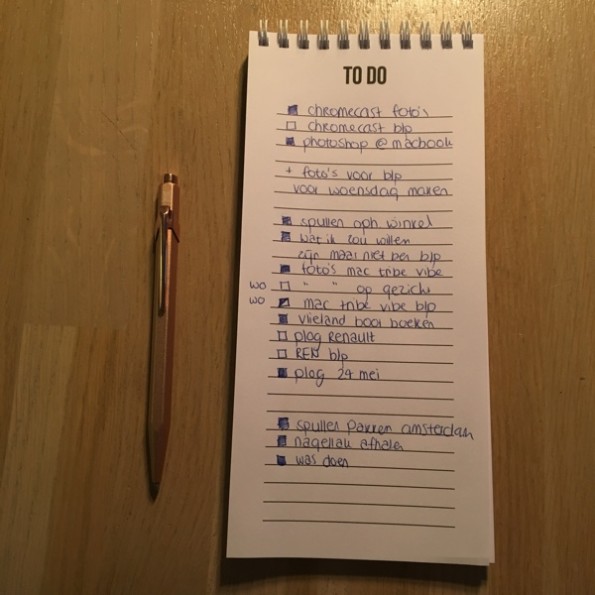 TO DO
chromecast foto's
chromecast blp
photoshop @ macbook
+ foto's voor blp
voor woensdag maken
spullen oph winkel
wat ik zou willen
zijn maar niet ben blp
foto's mac tribe vibe
wo " " op gezicht
wo mac tribe vibe blp
vlieland boot boeken
plog Renault
REN blp
plog 24 mei
spullen pakken amsterdam
nagellak afhalen
was doen